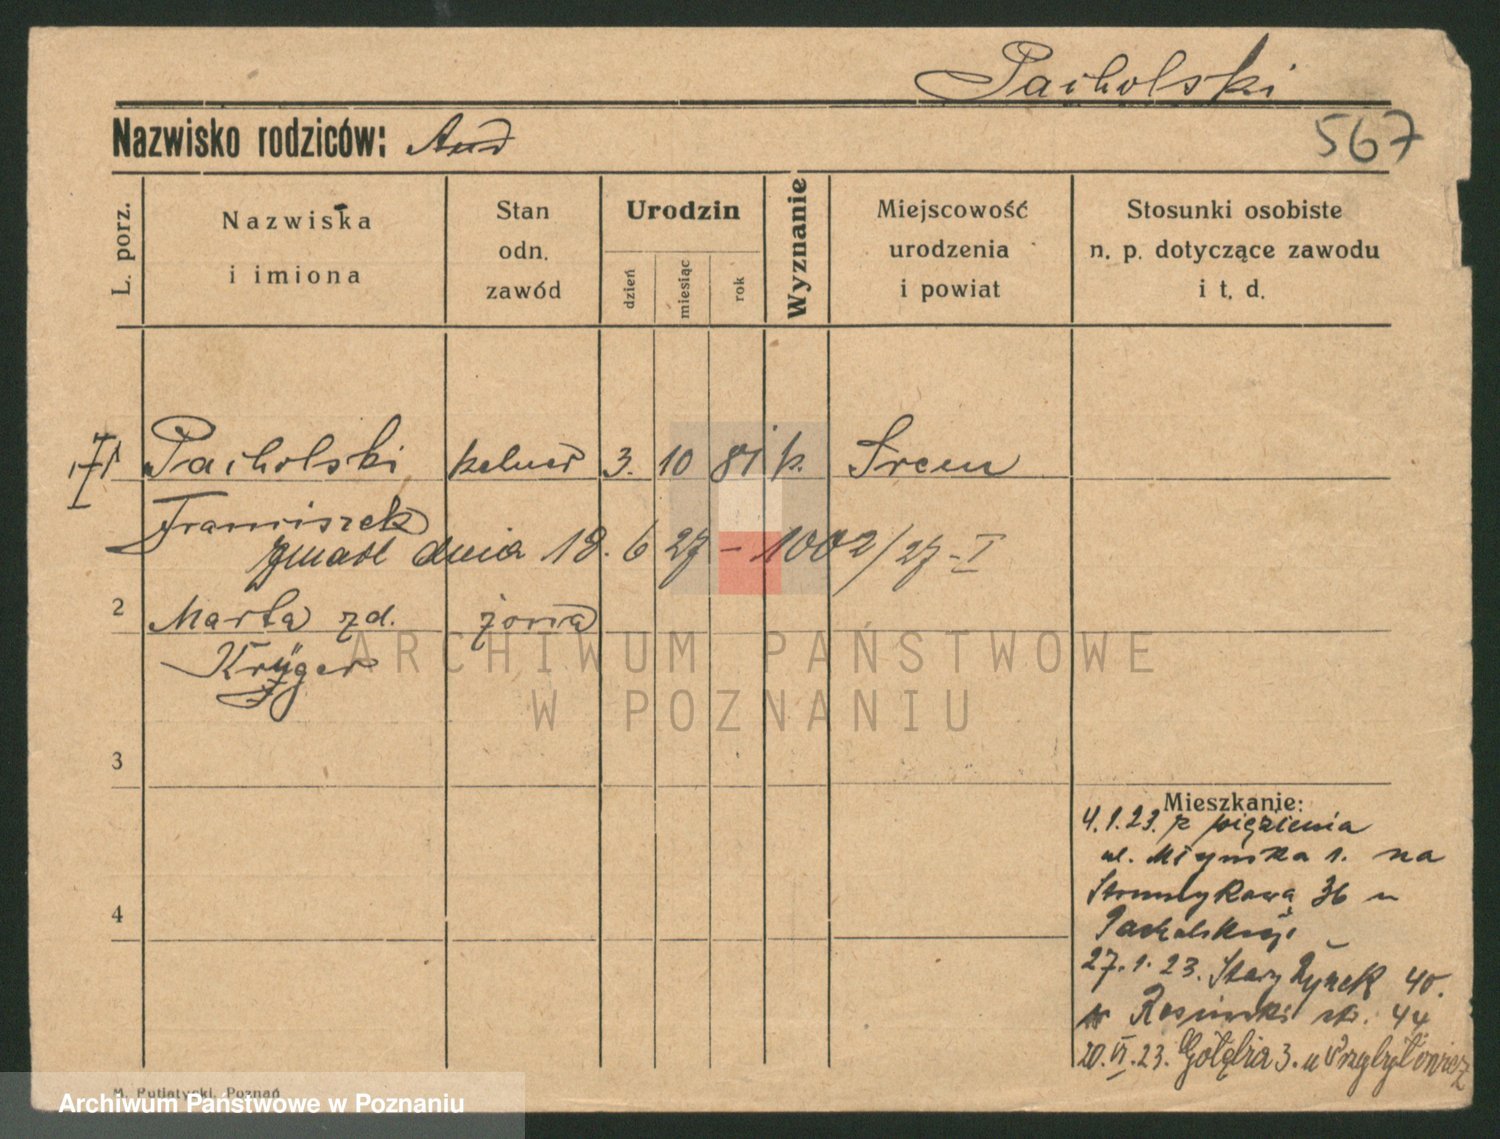 Pacholski
567
Nazwisko rodziców: And
L. porz.
Nazwiska i imiona
Stan odn. zawód
Urodzin
dzień
miesiąc
rok
Wyznanie
Miejscowość urodzenia i powiat
Stosunki osobiste n. p. dotyczące zawodu i t. d.
Pacholski kelner 3. 10 81 k. Srem
Franciszek
zmarł dnia 19. 6 27 - 1002/27 - I
2 Marta zd. żona
Krüger
ARCHIWUM PAŃSTWOWE
W POZNANIU
3
Mieszkanie:
4.1.23. z więzienia
ul. Młyńska 1. na
Strumykowa 36 u
Pacholskiej
4
27.1.23. Stary Rynek 40.
20.VI.23. Gołębia 3. u
M. Putiatycki, Poznań
Archiwum Państwowe w Poznaniu